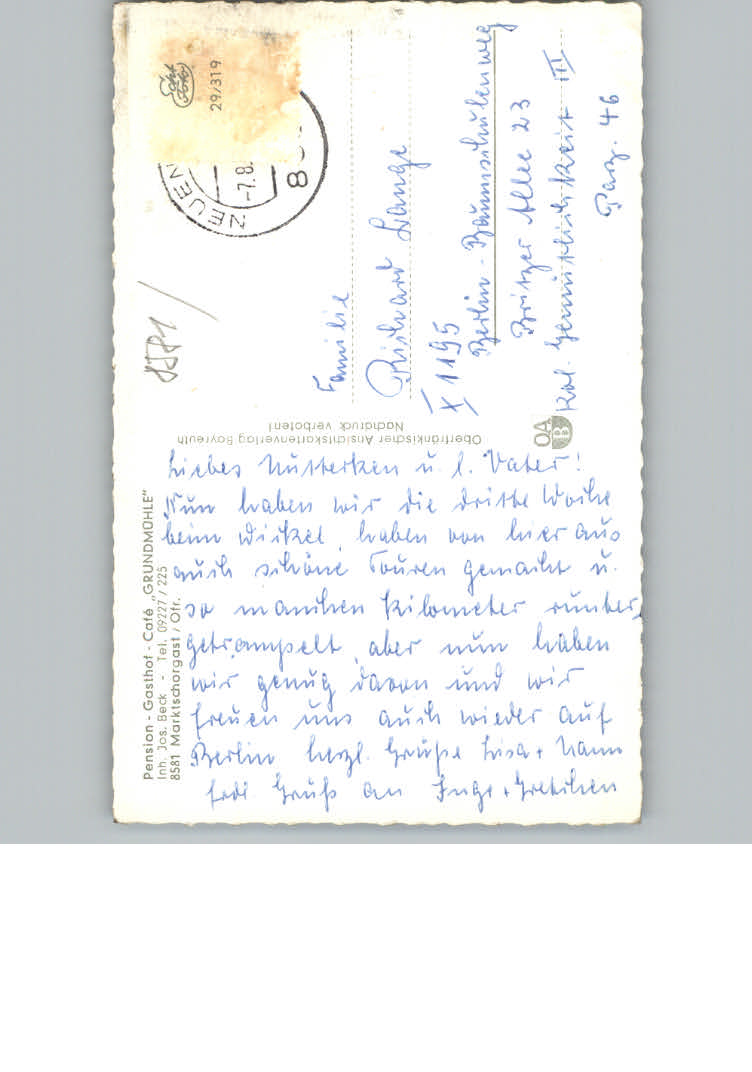 Pension - Gasthof - Café „GRUNDMÜHLE"
Inh. Jos. Beck - Tel. 09227 / 225
8581 Marktschorgast / Ofr.
Liebes Mutterken u. l. Vater!
Nun haben wir die dritte Woche
beim Wickel, haben von hier aus
auch schöne Touren gemacht u.
so manchen Kilometer runter
getrampelt, aber nun haben
wir genug davon und wir
freuen uns auch wieder auf
Berlin herzl. Grüße Lisa +
Gruß an Inge + Gretchen
Oberfränkischer Ansichtskartenverlag Bayreuth
Nachdruck verboten!
OA
B
Echt
Foto
29/319
NEUEN
-7.8.
8
8581
Familie
Richard Lange
X 1195
Berlin - Baumschulenweg
Britzer Allee 23
Kol. Gemütlichkeit III
Parz. 46